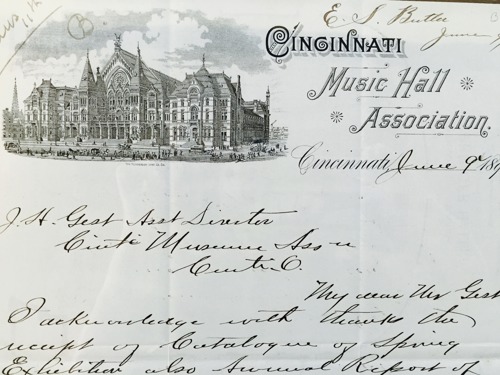 B.
E. S. Butler
June 9
CINCINNATI
Music Hall
Association,
Cincinnati, June 9th 189
J. H. Gest Asst Director
Cinti Museum Ass'n
Cinti O.
My dear Mr Gest
I acknowledge with thanks the
receipt of Catalogue of Spring
Exhibition also Annual Report of